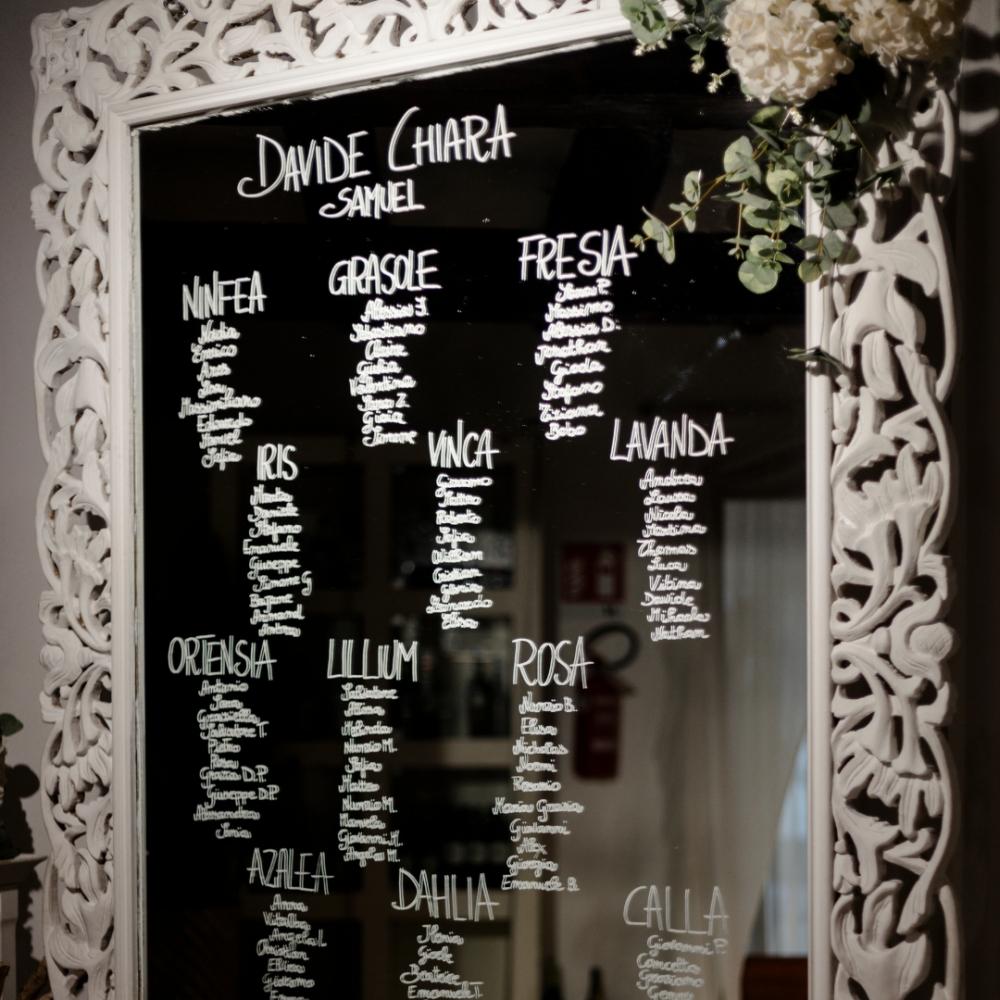 DAVIDE CHIARA
SAMUEL
NINFEA
Enrico
Massimiliano
Edoardo
Samuel
Sofia
GIRASOLE
Alessia I.
Giulia
Valentina
Sara Z.
Gioia
Simone
FRESIA
Massimo
Alessia D.
Jonathan
Giada
Stefano
Tiziana
Bobo
IRIS
Stefano
Emanuele
Giuseppe
Simone G
VINCA
Giacomo
Matteo
Roberto
Sofia
William
Cristian
Gloria
Leonardo
Elisa
LAVANDA
Andrea
Laura
Nicola
Martina
Thomas
Luca
Vitina
Davide
Mihaela
Nathan
ORTENSIA
Antonio
Sara
Graziella
Salvatore T.
Pietro
Rosa
Grazia D.P.
Giuseppe D.P.
Alessandra
Sonia
LILLIUM
Salvatore
Melinda
Nunzio M.
Sofia
Matteo
Nunzio M.
Manuela
Giovanni M.
Angela M.
ROSA
Nunzio B.
Elisa
Nicholas
Noemi
Rosario
Maria Grazia
Giovanni
Alex
Giorgia
Emanuele B.
AZALEA
Anna
Angela L
Christian
Girolamo
DAHLIA
Ilenia
Gioele
Beatrice
Emanuele T.
CALLA
Giovanni P.
Concetta
Geronimo